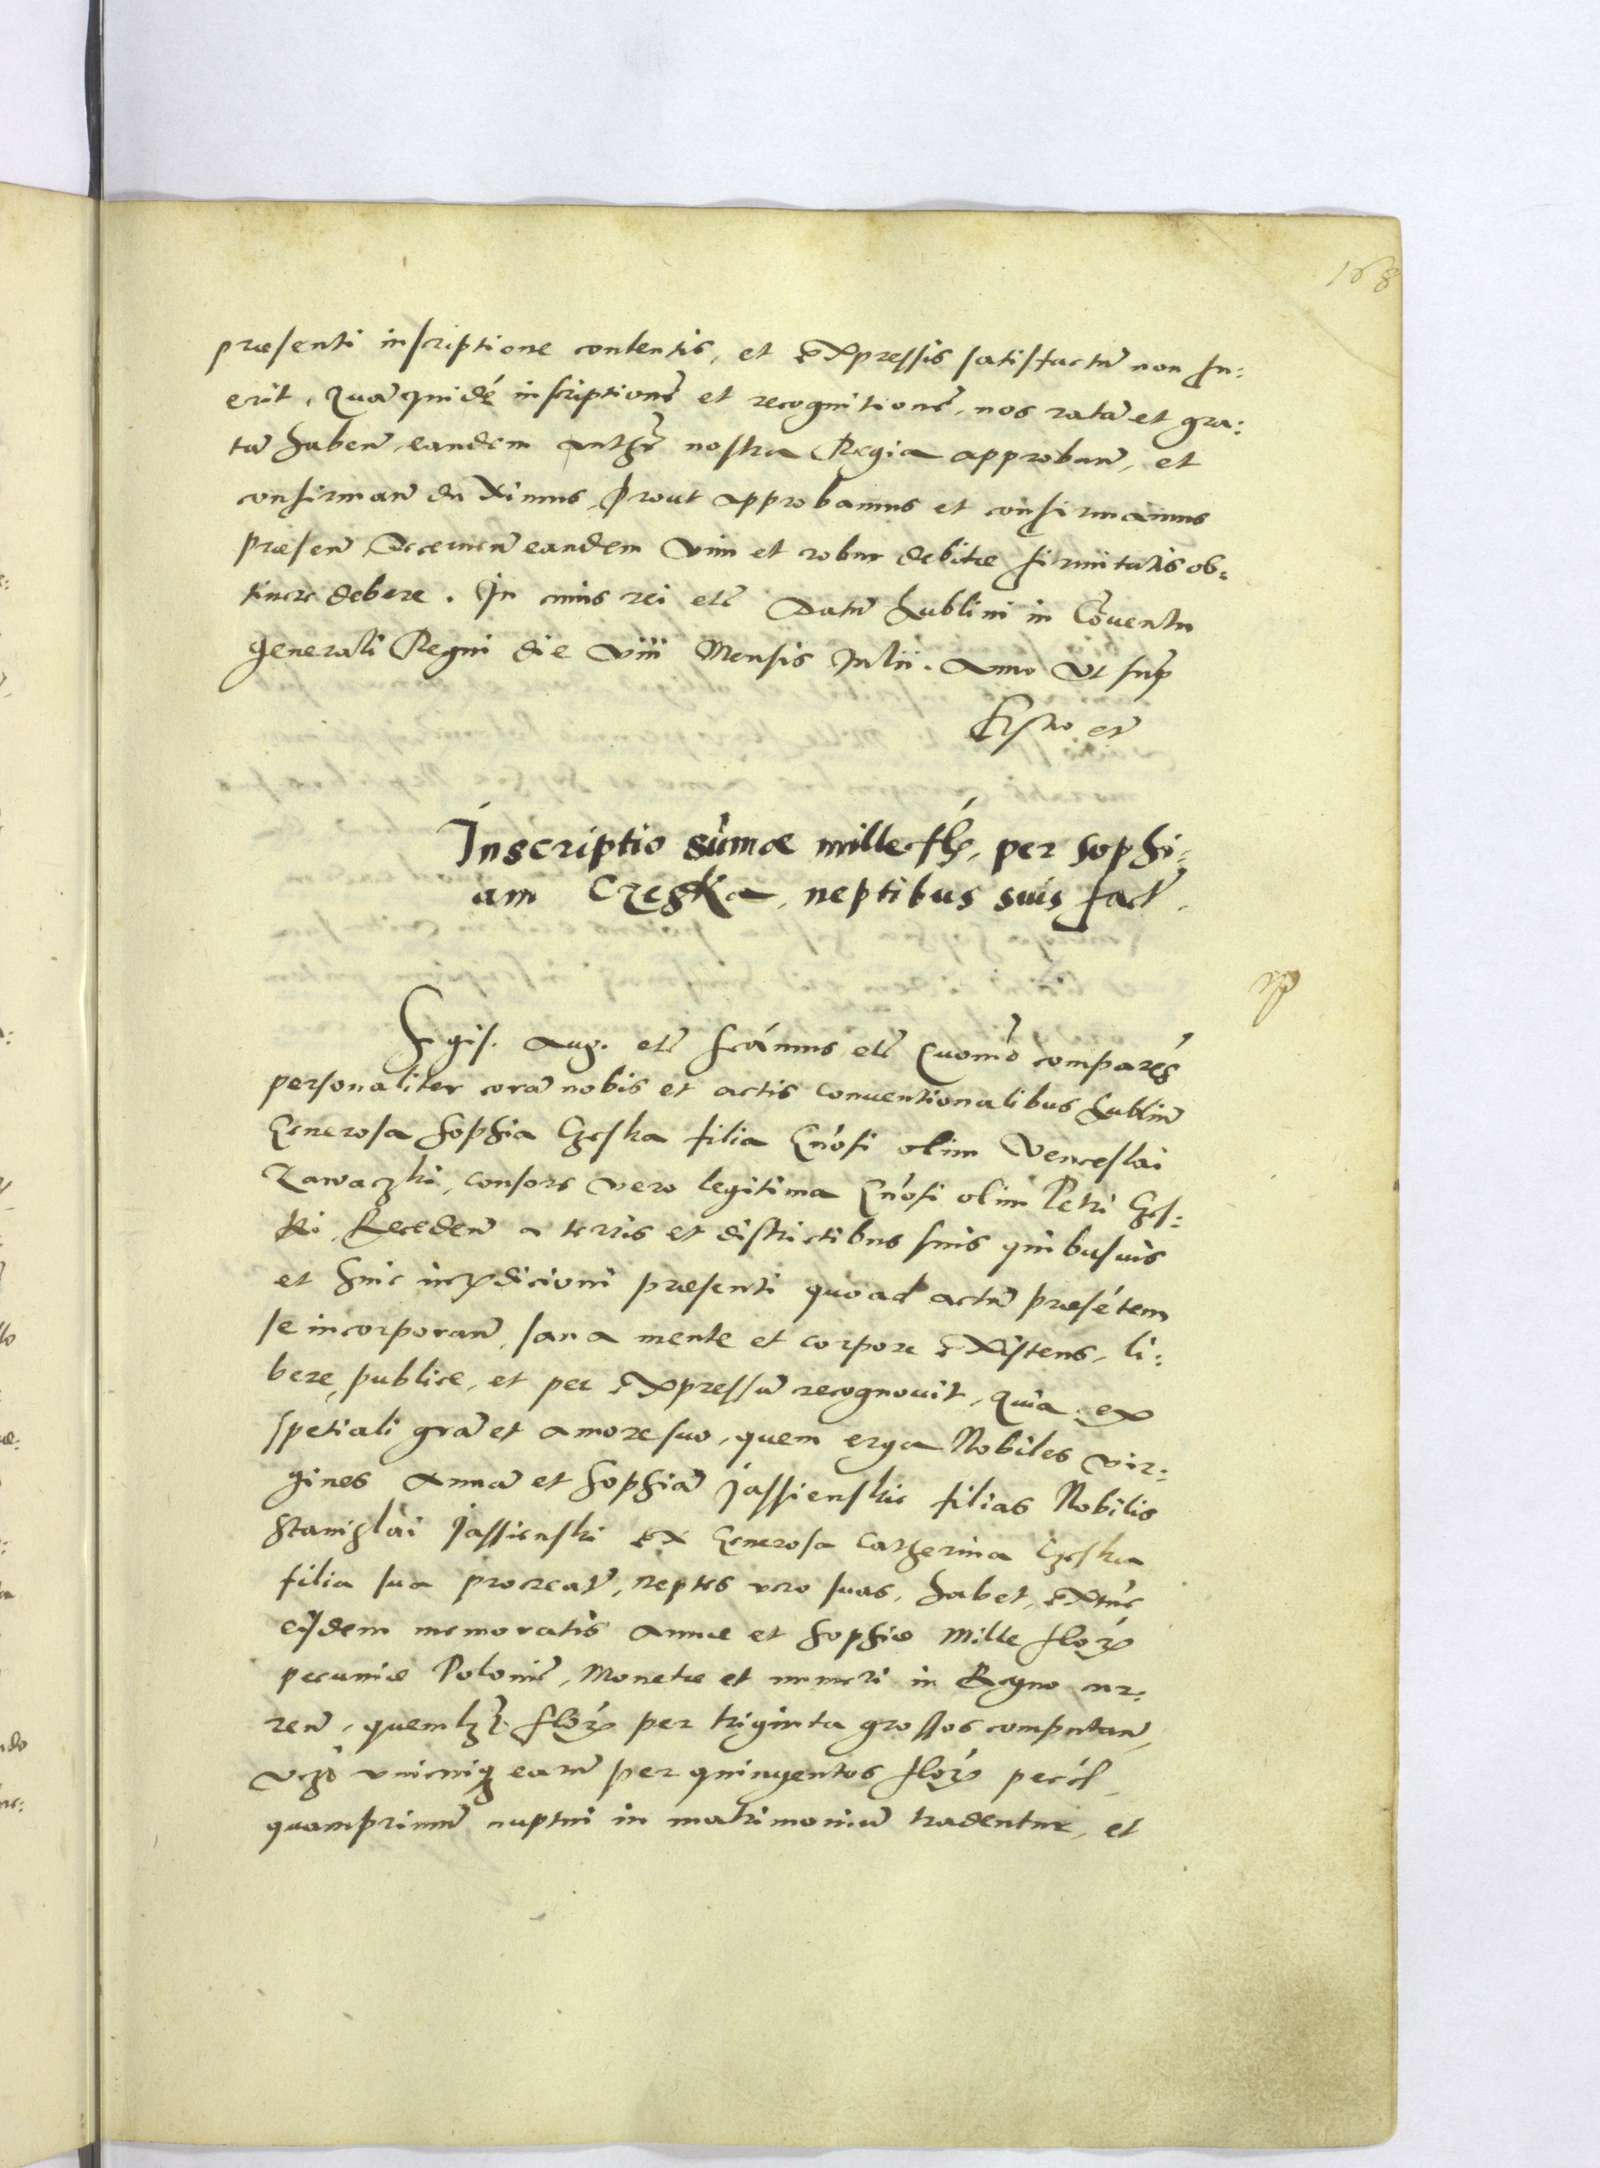 168
præsenti inscriptione contentis, et expressis satisfactū non fu:
erit, Quā quidē inscriptionē et recognitionē, nos ratā et gra:
tā habeñ eandem authē nostra Regia approbañ, et
confirmañ duximus, prout approbamus et confirmamus
præseñ Decerneñ eandem vim et robur debitæ firmitatis ob:
tinere debere. In cuius rei etc̄ Datū Lublini in Cōuentu
generali Regni die viii Mensis Julii. Anno Ut sup̄
Inscriptio sūmæ mille flǿ, per Sophi:
am Czeska, neptibus suis fact̄.
Sigis. Aug. etc̄ s̄camus etc̄ Quom̄o comparēs
personaliter corā nobis et actis conuentionalibus Lubliñ
Generosa Sophia Czeska filia Gn̄osi olim Venceslai
Zawaczki, consors vero legitima Gn̄osi olim Petri Czes:
ki, Recedeñ a terris et districtibus suis quibusuis
et huic iurisdicioni præsenti quoad actū præsētem
se incorporañ, sana mente et corpore existens, li:
bere, publice, et per expressū recognouit, Quia ex
spetiali grā et amore suo, quem erga Nobiles vir:
gines Annā et Sophiā Jassienskie filias Nobilis
Stanislai Jassienski ex Generosa Catherina Czeska
filia sua procreat̄, neptes vero suas, habet, extūc
eisdem memoratis Annæ et Sophiæ Mille floꝝ
pecuniæ Polonic̄, Monetæ et numeri in Regno cur:
reñ, quemlꝫ floꝝ per triginta grossos computañ,
vicꝫ unicuiqꝫ earū per quingentos floꝝ pec̄
quamprimū nuptui in matrimoniū tradentur, et